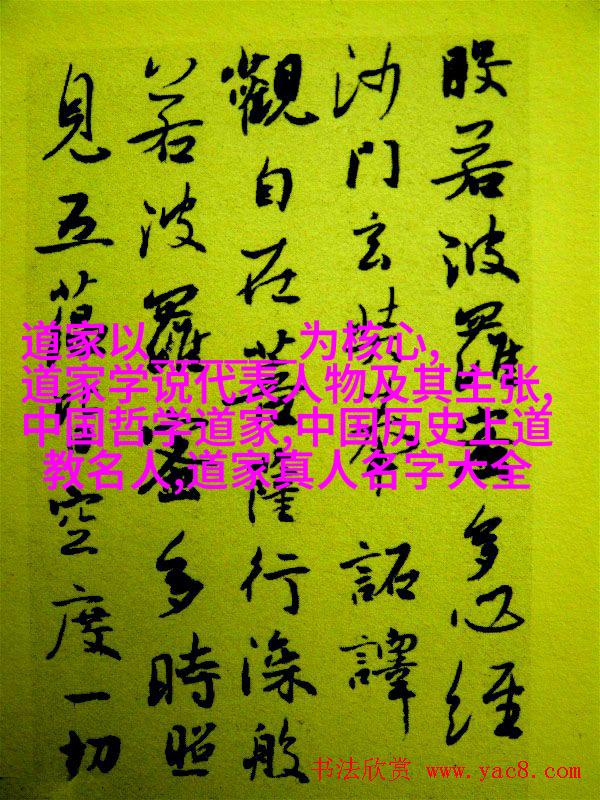 般若波羅蜜多心經
沙門玄奘奉 詔譯
觀自在菩薩行深般
若波羅蜜多時照
見五蘊皆空度一切
道家以______为核心,
道家学说代表人物及其主张,
中国哲学道家,中国历史上道
教名人,道家真人名字大全
书法欣赏 www.yac8.com